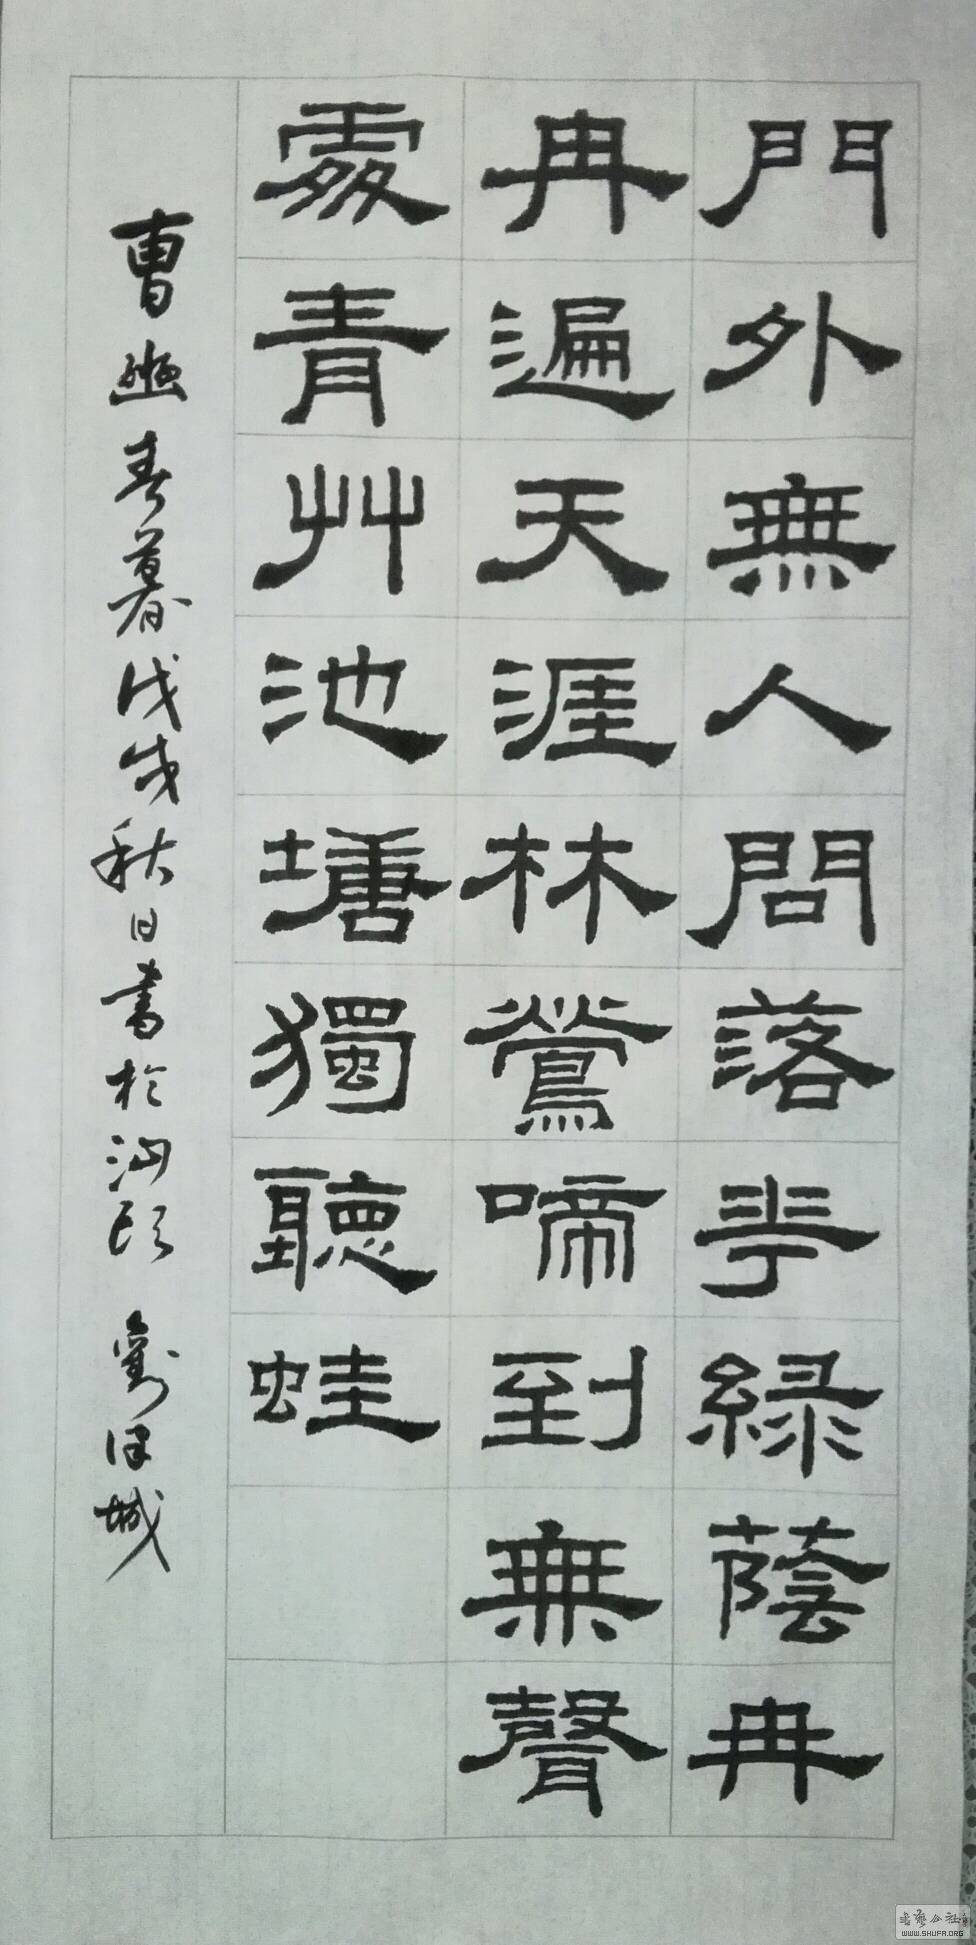 門外無人問落花綠蔭冉
冉遍天涯林鶯啼到無聲
處青艸池塘獨聽蛙
曹豳春暮戊戌秋日書於泗頭劉保城
書藝公社
WWW.SHUFA.ORG